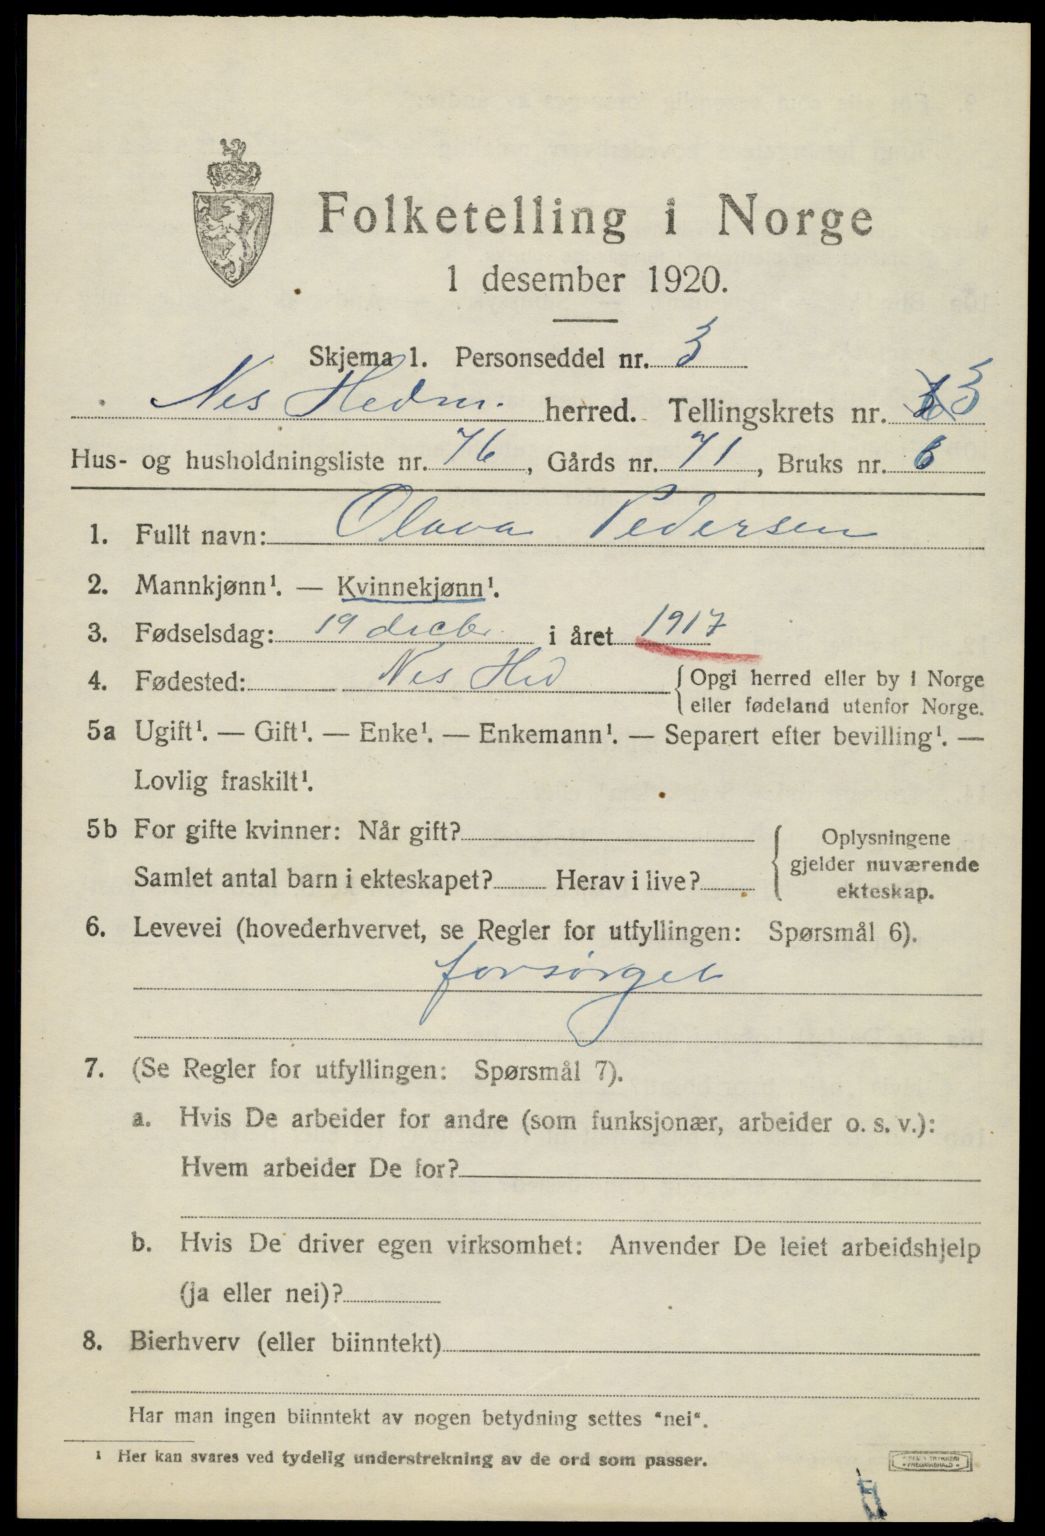 Folketelling i Norge
1 desember 1920.
Skjema 1. Personseddel nr. 3
Nes Hedm. herred. Tellingskrets nr. 3
Hus- og husholdningsliste nr. 76, Gårds nr. 71, Bruks nr. 6
1. Fullt navn: Olava Pedersen
2. Mannkjønn¹. — Kvinnekjønn¹.
3. Fødselsdag: 19 decbr i året 1917
4. Fødested: Nes Hed {Opgi herred eller by i Norge
eller fødeland utenfor Norge.
5a Ugift¹. — Gift¹. — Enke¹. — Enkemann¹. — Separert efter bevilling¹. —
Lovlig fraskilt¹.
5b For gifte kvinner: Når gift?
Samlet antal barn i ekteskapet? Herav i live?
Oplysningene
gjelder nuværende
ekteskap.
6. Levevei (hovederhvervet, se Regler for utfyllingen: Spørsmål 6).
forsørget
7. (Se Regler for utfyllingen: Spørsmål 7).
a. Hvis De arbeider for andre (som funksjonær, arbeider o. s. v.):
Hvem arbeider De for?
b. Hvis De driver egen virksomhet: Anvender De leiet arbeidshjelp
(ja eller nei)?
8. Bierhverv (eller biinntekt)
Har man ingen biinntekt av nogen betydning settes "nei".
¹ Her kan svares ved tydelig understrekning av de ord som passer.